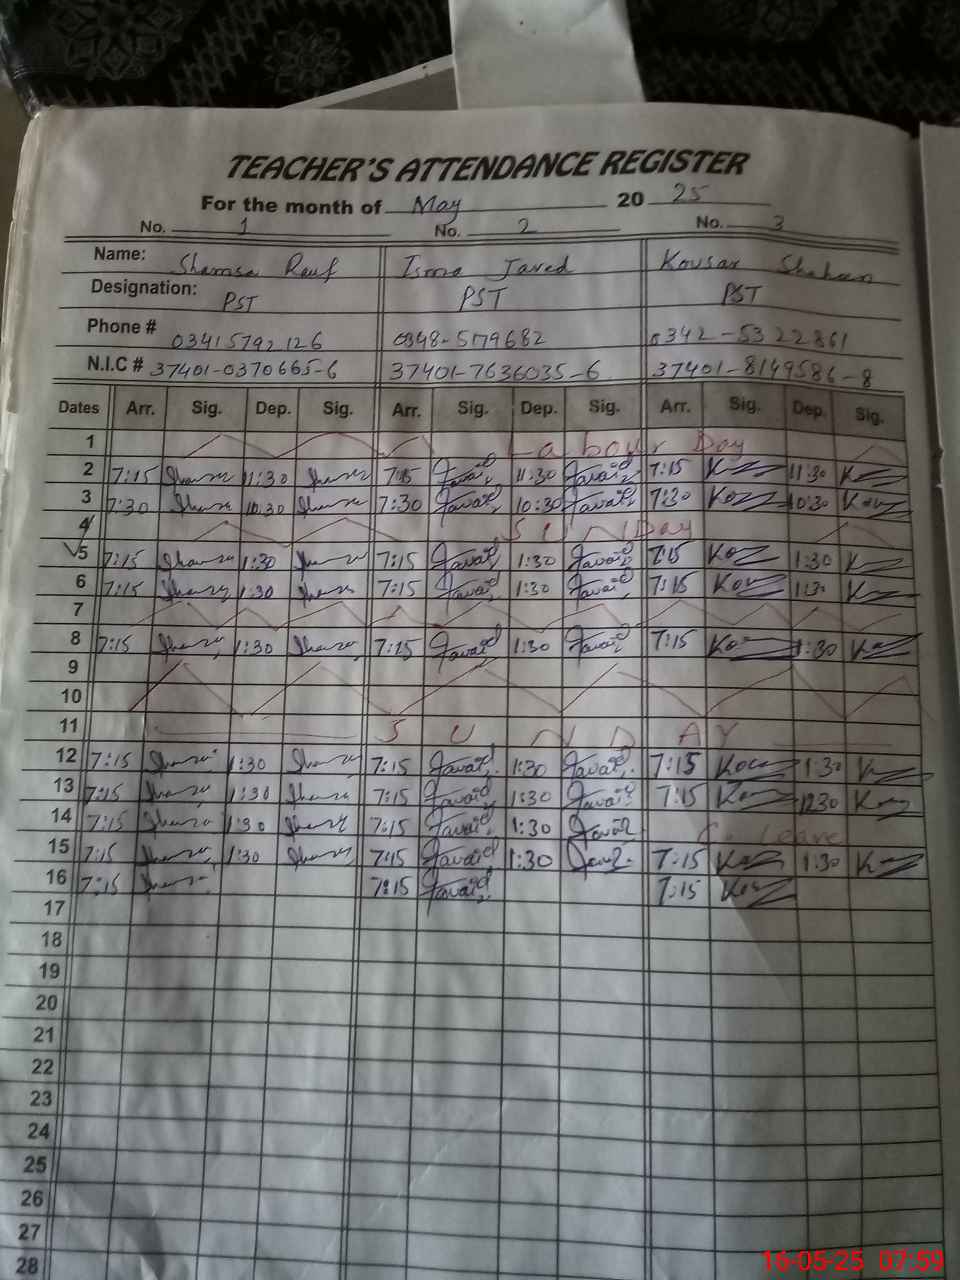 TEACHER'S ATTENDANCE REGISTER
For the month of May 2025
No. 1 No. 2 No. 3
Name: Shamsa Rauf Isma Javed Kousar Shaheen
Designation: PST PST PST
Phone # 03415792126 0348-5179682 0342-5322861
N.I.C # 37401-0370665-6 37401-7636035-6 37401-8149586-8
Dates Arr. Sig. Dep. Sig. Arr. Sig. Dep. Sig. Arr. Sig. Dep. Sig.
1 Labour Day
2 7:15 Shamsa 11:30 Shamsa 7:15 Javaid 11:30 Javaid 7:15 11:30
3 7:30 Shamsa 10:30 Shamsa 7:30 Javaid 10:30 Javaid 7:30 10:30
4 SUNDay
5 7:15 Shamsa 1:30 Shamsa 7:15 Javaid 1:30 Javaid 7:15 1:30
6 7:15 Shamsa 1:30 Shamsa 7:15 Javaid 1:30 Javaid 7:15 1:30
7
8 7:15 Shamsa 1:30 Shamsa 7:15 Javaid 1:30 Javaid 7:15 1:30
9
10
11 SUNDAY
12 7:15 Shamsa 1:30 Shamsa 7:15 Javaid 1:30 Javaid 7:15 1:30
13 7:15 Shamsa 1:30 Shamsa 7:15 Javaid 1:30 Javaid 7:15 12:30
14 7:15 Shamsa 1:30 Shamsa 7:15 Javaid 1:30 Javaid Leave
15 7:15 Shamsa 1:30 Shamsa 7:15 Javaid 1:30 7:15 1:30
16 7:15 Shamsa 7:15 Javaid 7:15
17
18
19
20
21
22
23
24
25
26
27
28
16-05-25 07:59